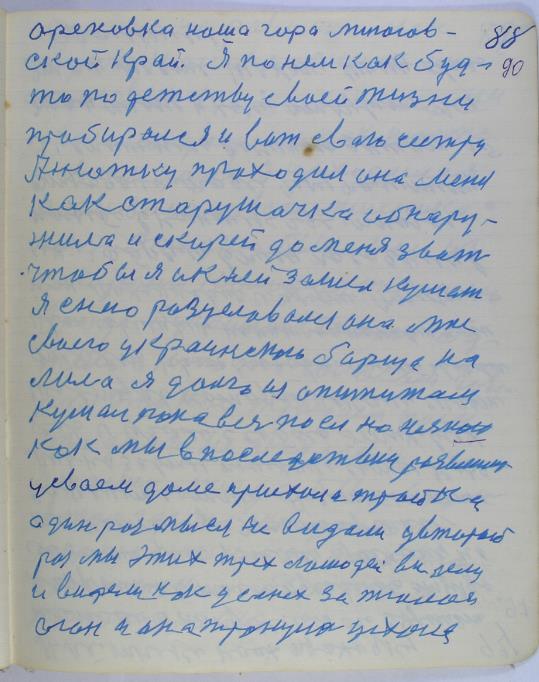 ореховка наша гора многов- 88
ской край. Я по нем как буд- 90
то по детству своей жизни
пробирался и вот сваю сестру
Анютку проходил она меня
как старушачка обнару-
жила и скорей до меня звать
чтобы я к ней зашел кушать
я снею расцеловался она мне
своего украинскаго борща на
лила я долго из
кушал пока вся после
как мы в последствии
усваем доме приехала тройка
адин раз мы се не видали увторой
раз мы этих трех лошадей видели
и видели как у них за
огон и она тронула уехала